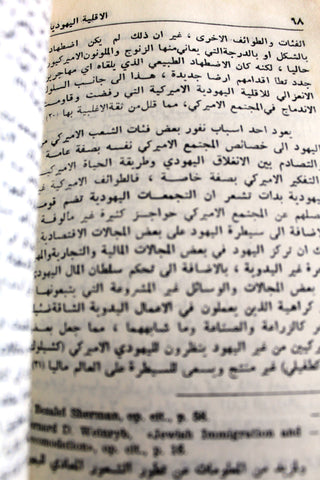 ٦٨ الاقلية اليهودية
الفئات والطوائف الاخرى ، غير ان ذلك لم يكن اضطهاد
بالشكل او بالدرجة التي يعاني منها الزنوج والملونون الاميركيون
حاليا ، لكنه كان الاضطهاد الطبيعي الذي يلقاه اي مهاجرين
جدد تطأ اقدامهم ارضا جديدة ، هذا الى جانب السلوك
الانعزالي للاقلية اليهودية الاميركية التي رفضت وقاومت
الاندماج في المجتمع الاميركي، مما قلل من ثقة الاغلبية بها (٣٠)
يعود احد اسباب نفور بعض فئات الشعب الاميركي من
اليهود الى خصائص المجتمع الاميركي نفسه بصفة عامة
التصادم بين الانغلاق اليهودي وطريقة الحياة الاميركية
التفكير الاميركي بصفة خاصة ، فالطوائف الاميركية غير
اليهودية بدأت تشعر ان التجمعات اليهودية تضم قوما
تفصلهم عن المجتمع الاميركي حواجز كثيرة غير مألوفة
بالاضافة الى سيطرة اليهود على بعض المجالات الاقتصادية
ذلك ان تركز اليهود في بعض المجالات المالية والتجارية والمهن
غير اليدوية ، بالاضافة الى تحكم سلطان المال اليهودي
بعض المجالات والوسائل غير المشروعة التي يتبعونها
كراهية الذين يعملون في الاعمال اليدوية الشاقة
كالزراعة والصناعة وما شابههما ، مما جعل بعض
الاميركيين من غير اليهود ينظرون لليهودي الاميركي (كشيلوك)
(طفيلي) غير منتج ويسعى للسيطرة على العالم ماليا (٣١)
Donald Sherman, op. cit., p. 58.
Bernard D. Weinryb, «Jewish Immigration and
Accomodation», op. cit., p. 16.
ولمزيد من المعلومات عن تطور الشعور المعادي لليهود